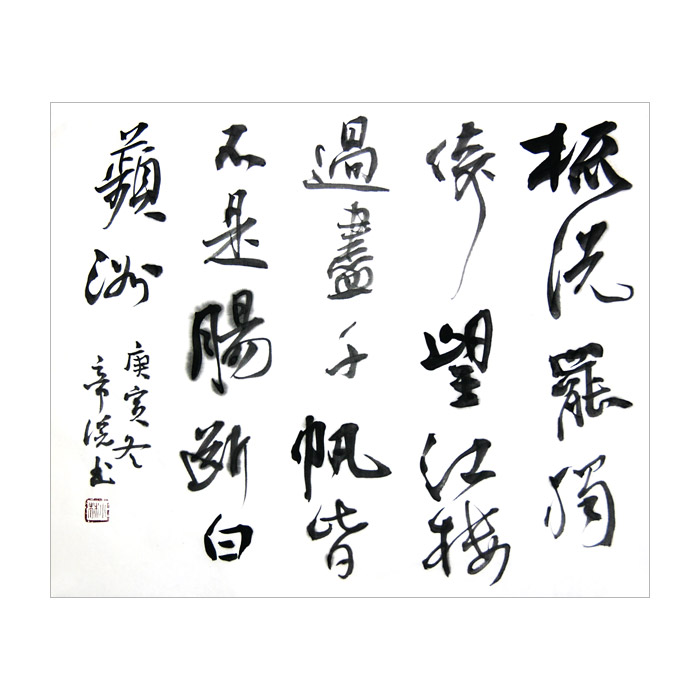 梳洗罷獨
倚望江樓
過盡千帆皆
不是腸斷白
蘋洲
庚寅冬
帝書